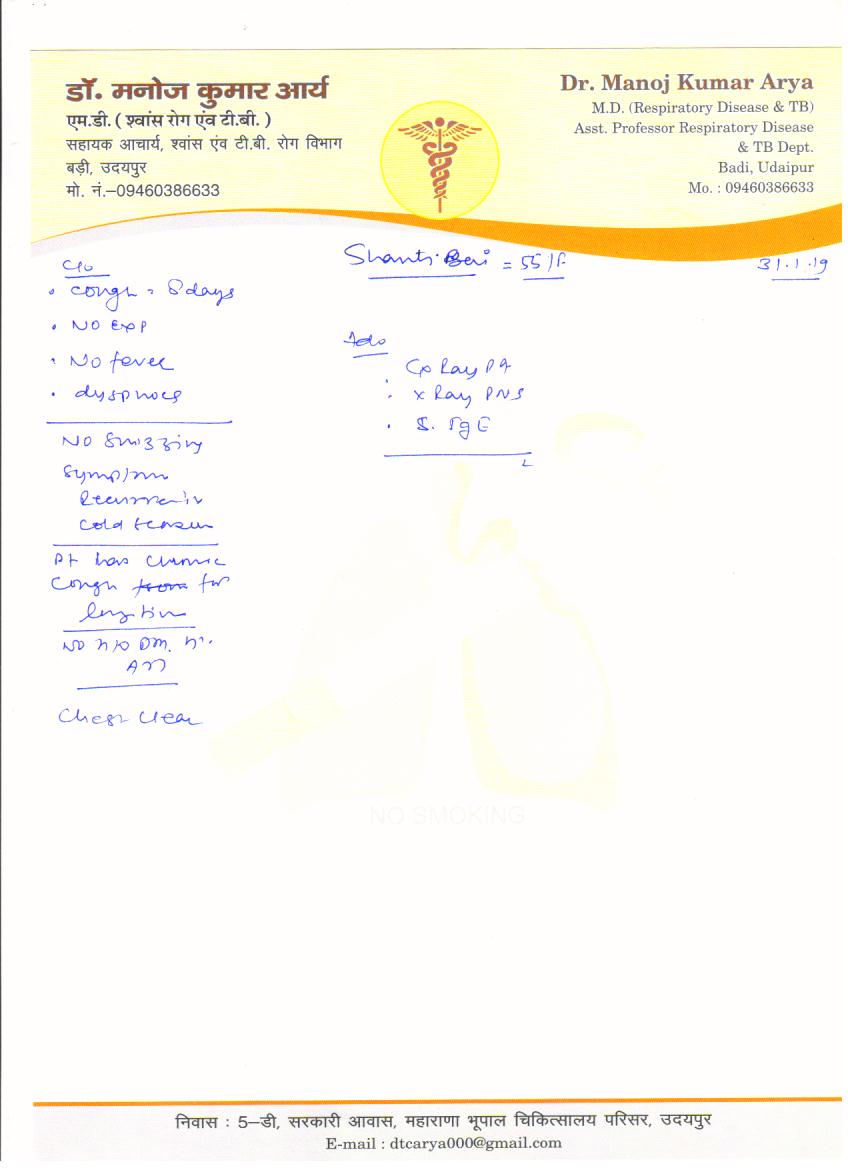 डॉ. मनोज कुमार आर्य
एम.डी. ( श्वांस रोग एंव टी.बी. )
सहायक आचार्य, श्वांस एंव टी.बी. रोग विभाग
बड़ी, उदयपुर
मो. नं.–09460386633
Dr. Manoj Kumar Arya
M.D. (Respiratory Disease & TB)
Asst. Professor Respiratory Disease
& TB Dept.
Badi, Udaipur
Mo. : 09460386633
Shanti = 55/F
31.1.19
C/o
• Cough = 8 days
• NO EXP
• No fever
• dyspnoea
NO Snizzing
Symptom
Recurrent
Cold
Pt has Chronic
Cough for
long time
NO H/O DM,
Chest clear
Adv
X Ray PA
• X Ray PNS
• S. IgE
NO SMOKING
निवास : 5–डी, सरकारी आवास, महाराणा भूपाल चिकित्सालय परिसर, उदयपुर
E-mail : dtcarya000@gmail.com